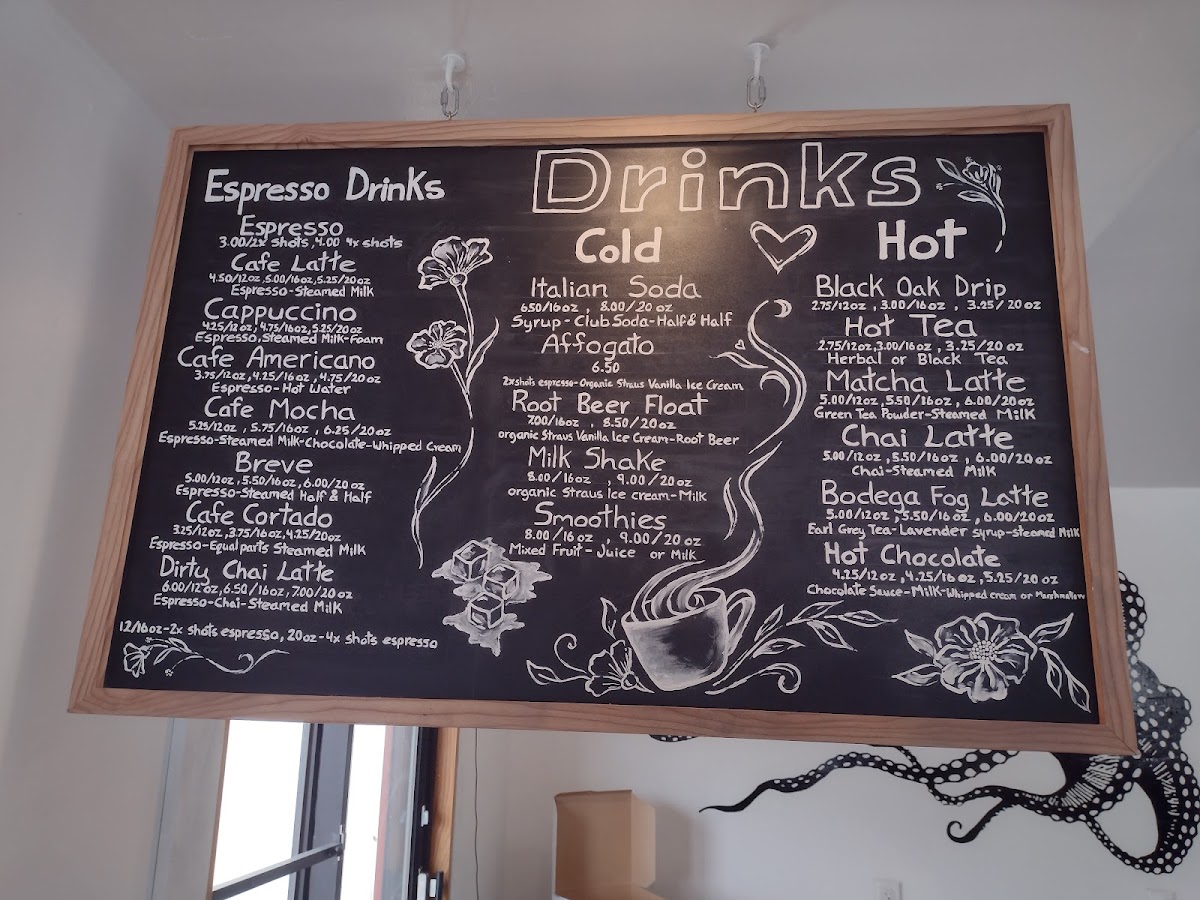 Drinks
Espresso Drinks
Espresso
3.00/2x shots, 4.00 4x shots
Cafe Latte
4.50/12oz, 5.00/16oz, 5.25/20oz
Espresso-Steamed Milk
Cappuccino
4.25/12oz, 4.75/16oz, 5.25/20oz
Espresso, Steamed Milk-Foam
Cafe Americano
3.75/12oz, 4.25/16oz, 4.75/20oz
Espresso-Hot Water
Cafe Mocha
5.25/12oz, 5.75/16oz, 6.25/20oz
Espresso-Steamed Milk-Chocolate-Whipped Cream
Breve
5.00/12oz, 5.50/16oz, 6.00/20oz
Espresso-Steamed Half & Half
Cafe Cortado
3.25/12oz, 3.75/16oz, 4.25/20oz
Espresso-Equal parts Steamed Milk
Dirty Chai Latte
6.00/12oz, 6.50/16oz, 7.00/20oz
Espresso-Chai-Steamed Milk
12/16oz-2x shots espresso, 20oz-4x shots espresso
Cold
Italian Soda
6.50/16oz, 8.00/20oz
Syrup-Club Soda-Half & Half
Affogato
6.50
2x shots espresso-Organic Straus Vanilla Ice Cream
Root Beer Float
7.00/16oz, 8.50/20oz
organic Straus Vanilla Ice Cream-Root Beer
Milk Shake
8.00/16oz, 9.00/20oz
organic Straus Ice cream-Milk
Smoothies
8.00/16oz, 9.00/20oz
Mixed Fruit-Juice or Milk
Hot
Black Oak Drip
2.75/12oz, 3.00/16oz, 3.25/20oz
Hot Tea
2.75/12oz, 3.00/16oz, 3.25/20oz
Herbal or Black Tea
Matcha Latte
5.00/12oz, 5.50/16oz, 6.00/20oz
Green Tea Powder-Steamed Milk
Chai Latte
5.00/12oz, 5.50/16oz, 6.00/20oz
Chai-Steamed Milk
Bodega Fog Latte
5.00/12oz, 5.50/16oz, 6.00/20oz
Earl Grey Tea-Lavender syrup-steamed Milk
Hot Chocolate
4.25/12oz, 4.25/16oz, 5.25/20oz
Chocolate Sauce-Milk-Whipped cream or Marshmallow